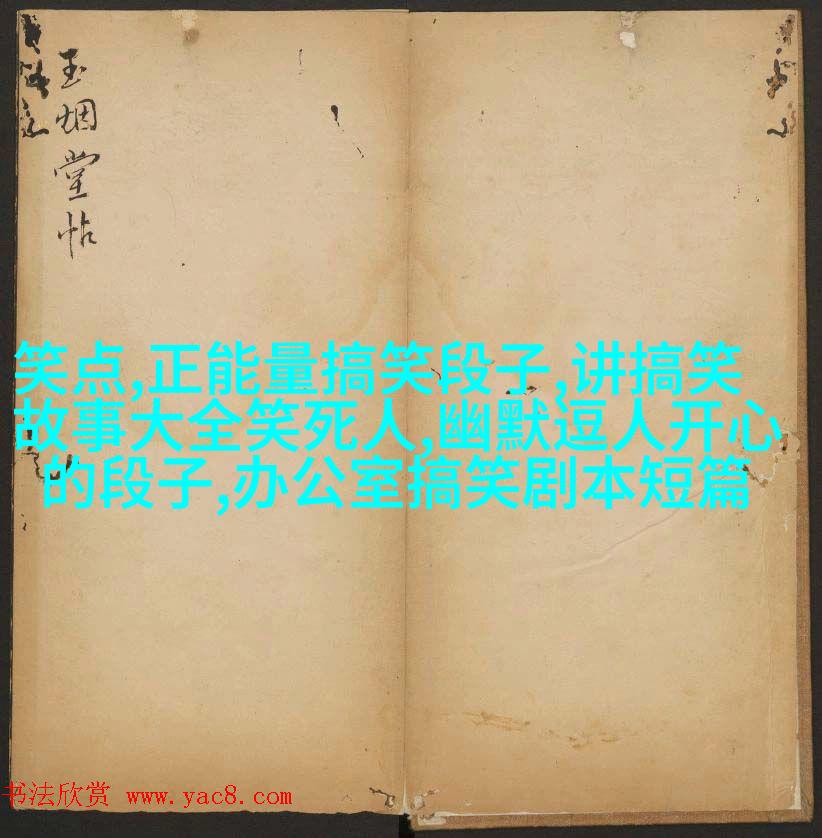 玉烟堂帖
笑点,正能量搞笑段子,讲搞笑
故事大全笑死人,幽默逗人开心
的段子,办公室搞笑剧本短篇
书法欣赏 www.yac8.com